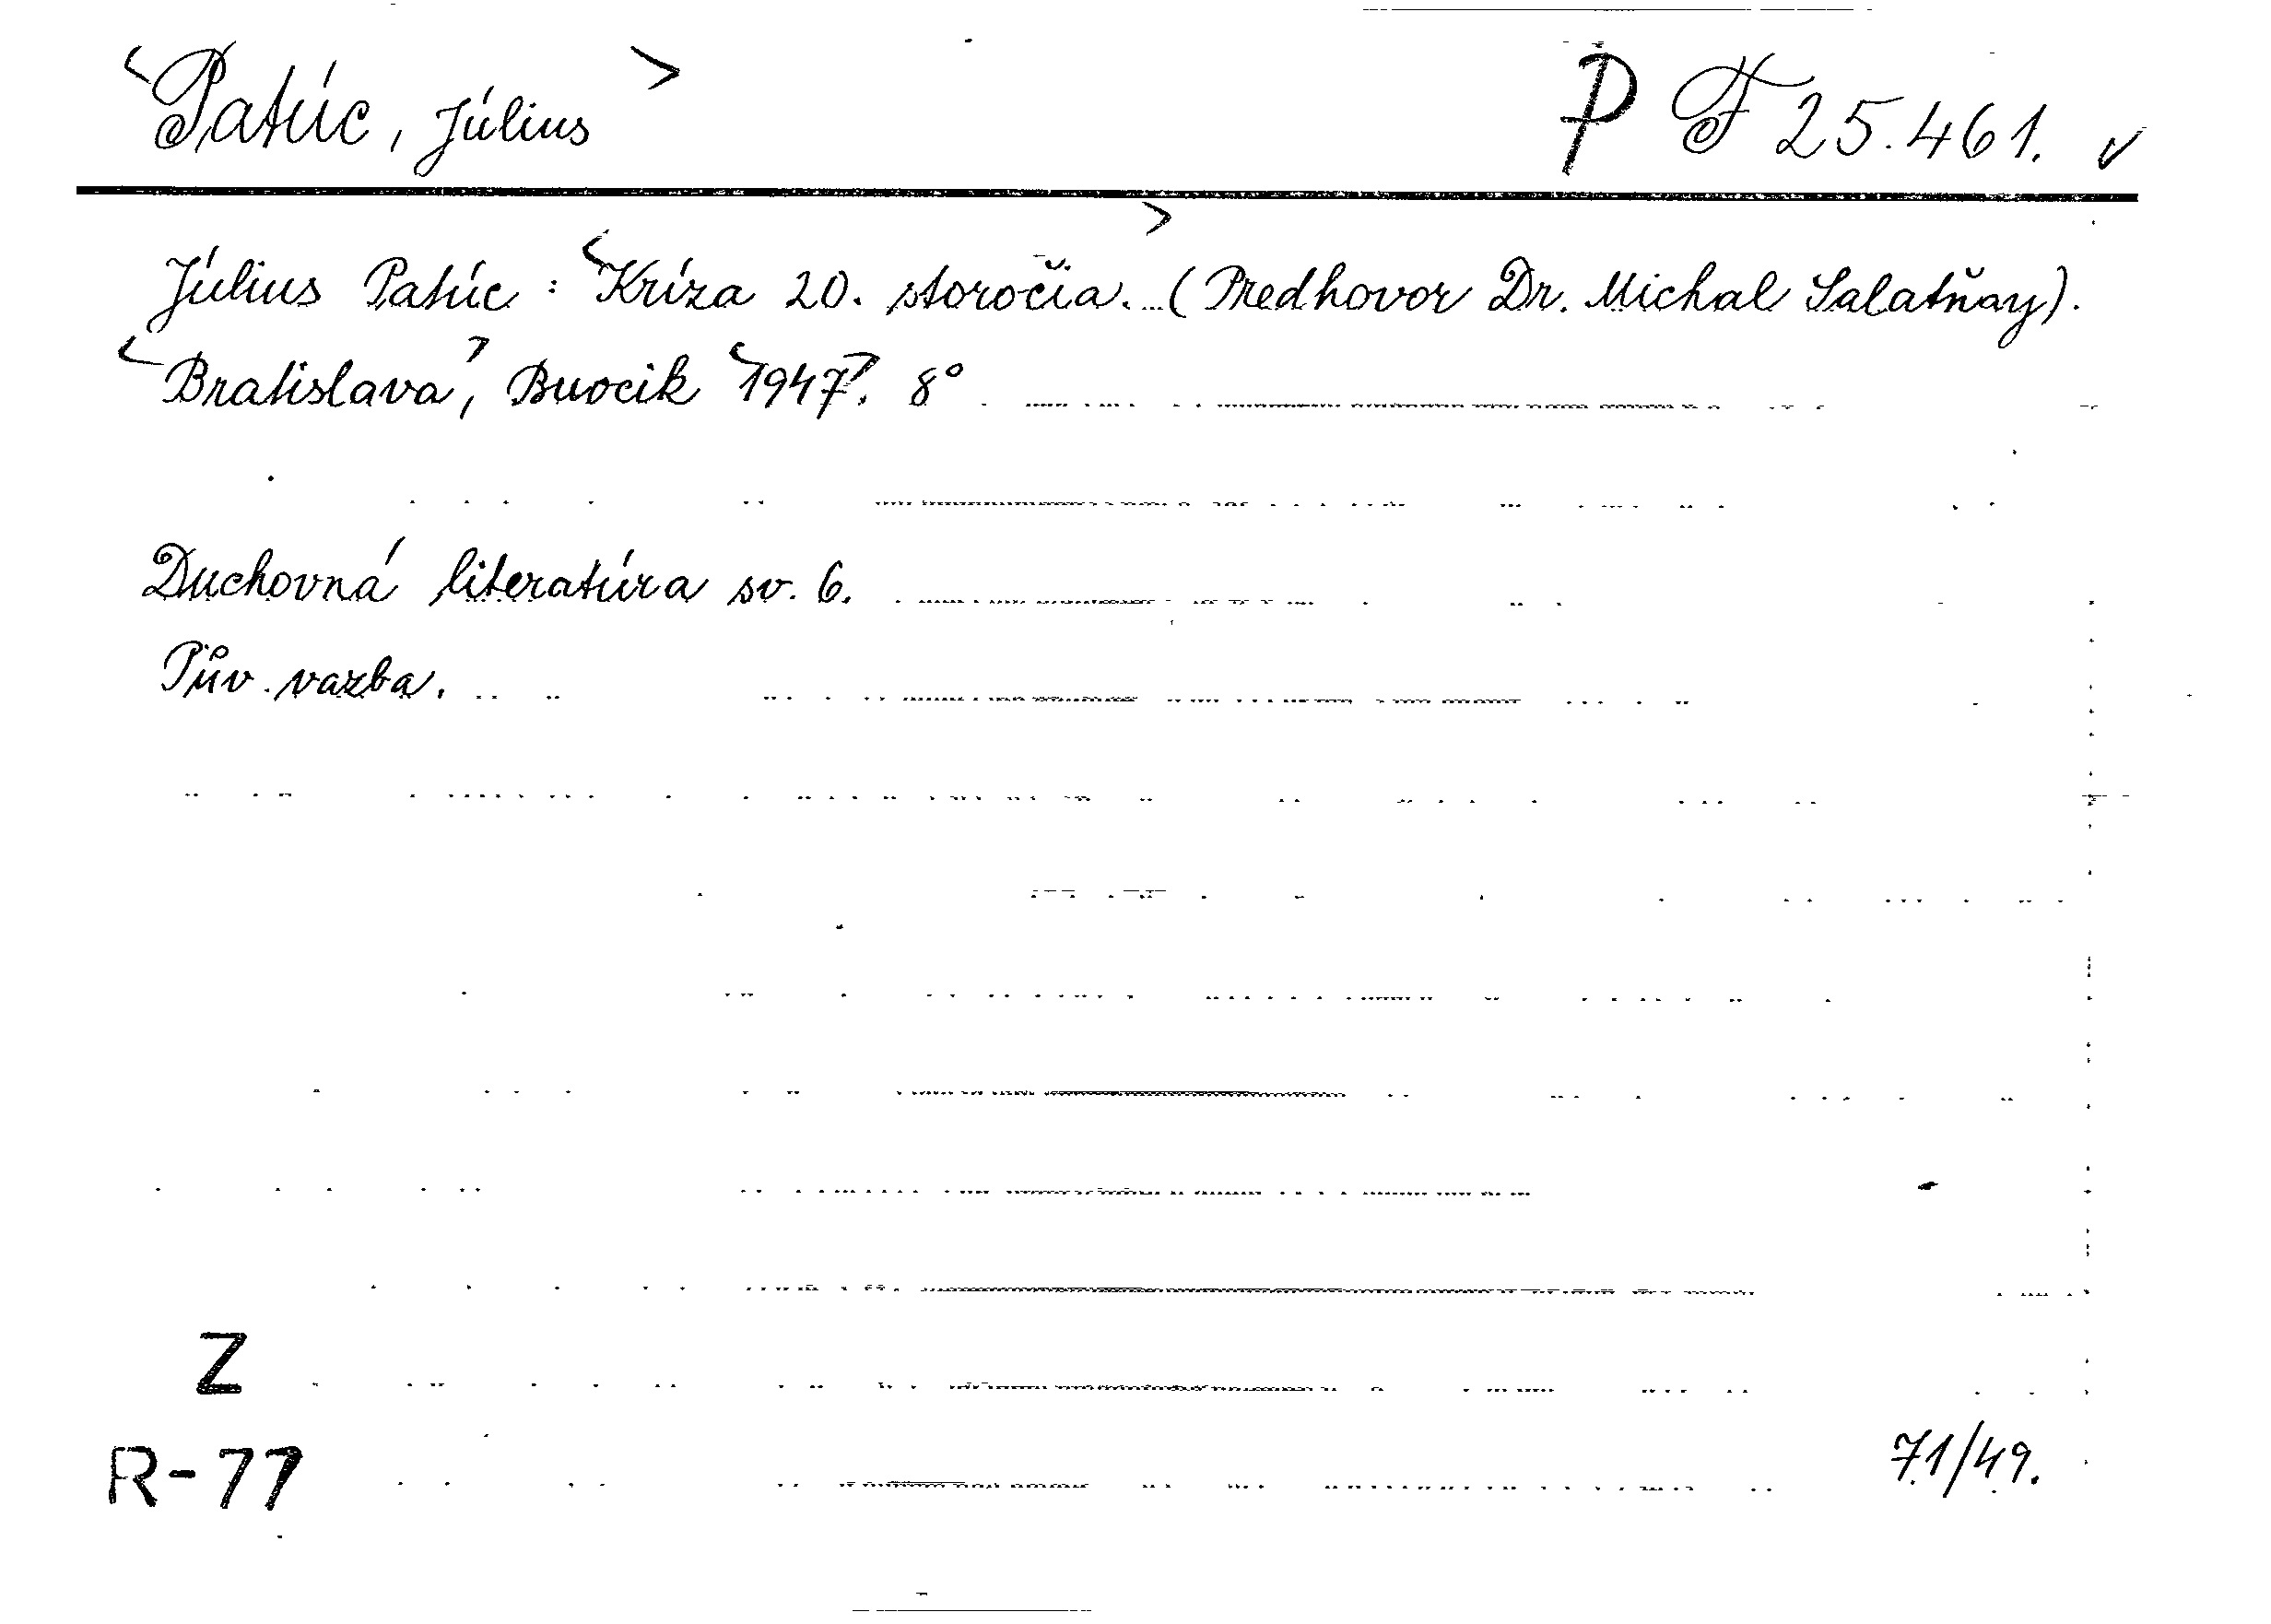 <Patúc, Július> P F 25.461. ✓
Július Patúc : <Kríza 20. storočia.> (Predhovor Dr. Michal Salatňay).
<Bratislava>, Buocik <1947>. 8°
Duchovná literatúra sv. 6.
Pův. vazba.
Z
R-77
71/49.